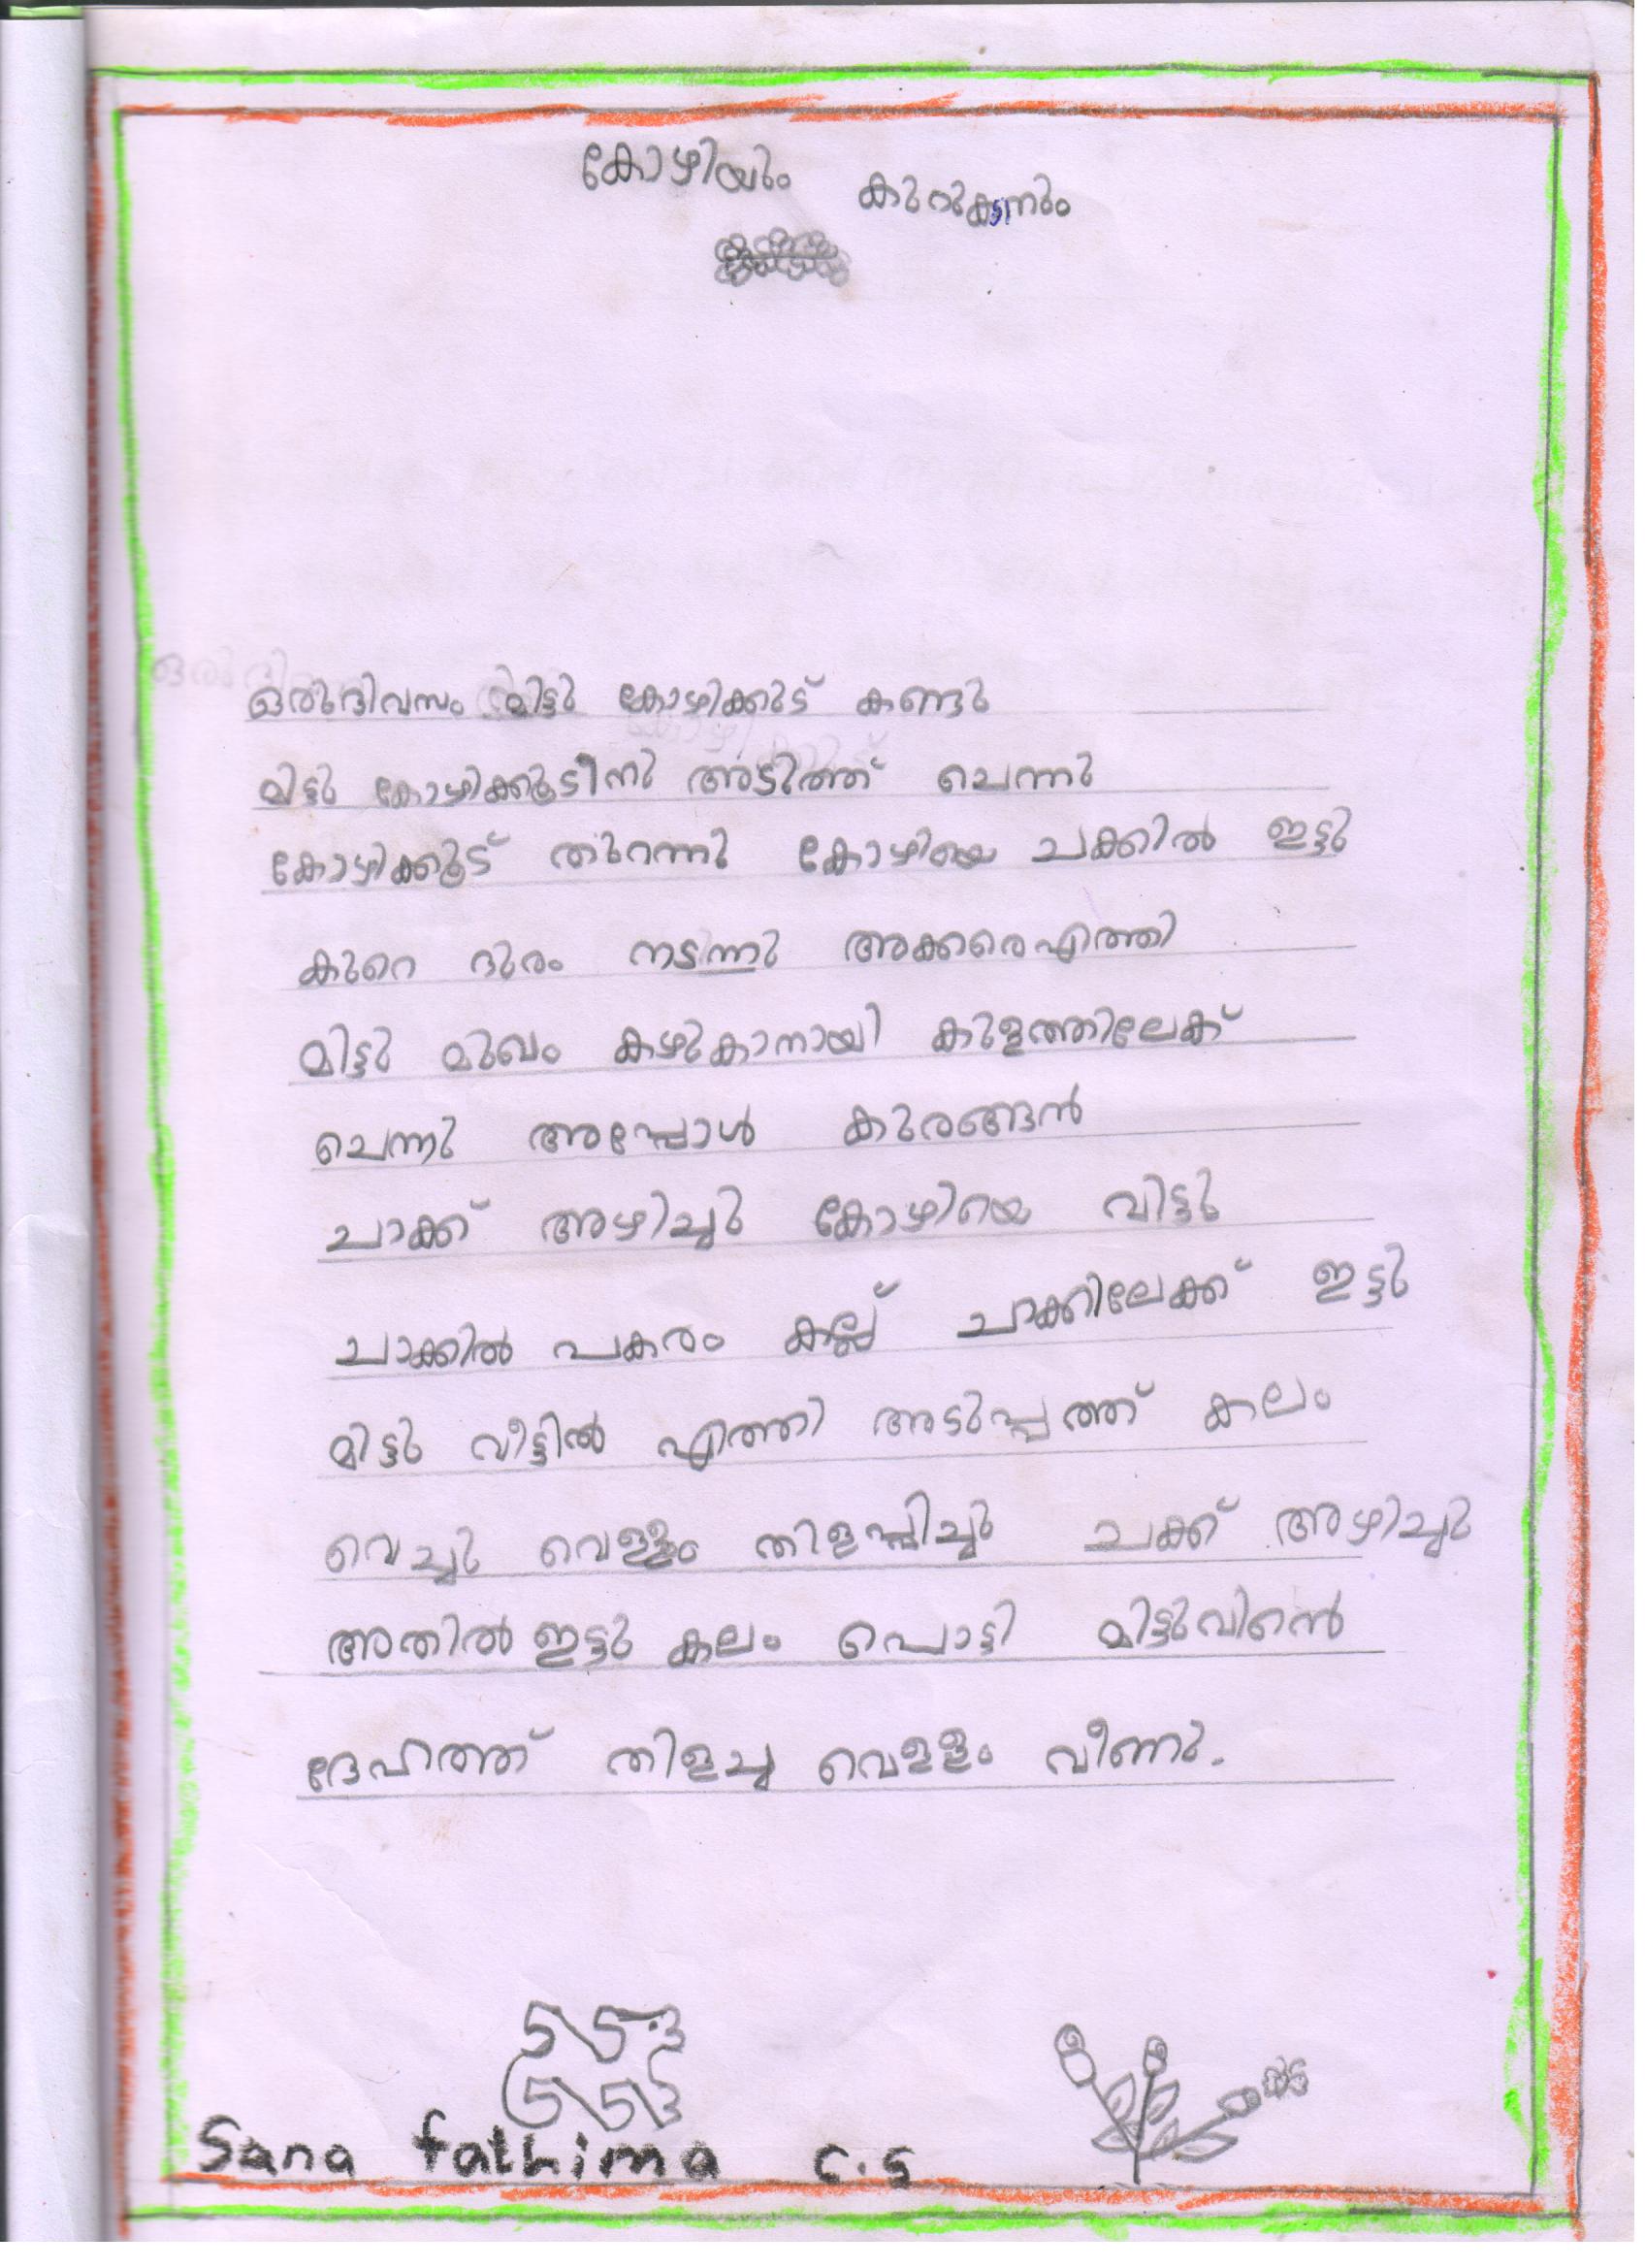 കോഴിയും കുറുക്കനും
ഒരുദിവസം മിട്ടു കോഴിക്കുട് കണ്ടു
മിട്ടു കോഴിക്കൂടീനു അടുത്ത് ചെന്നു
കോഴിക്കൂട് തുറന്നു കോഴിയെ ചക്കിൽ ഇട്ടു
കുറെ ദുരം നടന്നു അക്കരെഎത്തി
മിട്ടു മുഖം കഴുകാനായി കുളത്തിലേക്
ചെന്നു അപ്പോൾ കുരങ്ങൻ
ചാക്ക് അഴിച്ചു കോഴിയെ വിട്ടു
ചാക്കിൽ പകരം കല്ല് ചാക്കിലേക്ക് ഇട്ടു
മിട്ടു വീട്ടിൽ എത്തി അടുപ്പത്ത് കലം
വെച്ചു വെള്ളം തിളപ്പിച്ചു ചക്ക് അഴിച്ചു
അതിൽ ഇട്ടു കലം പൊട്ടി മിട്ടുവിൻെ
ദേഹത്ത് തിളച്ച വെള്ളം വീണു.
Sana fathima c.s